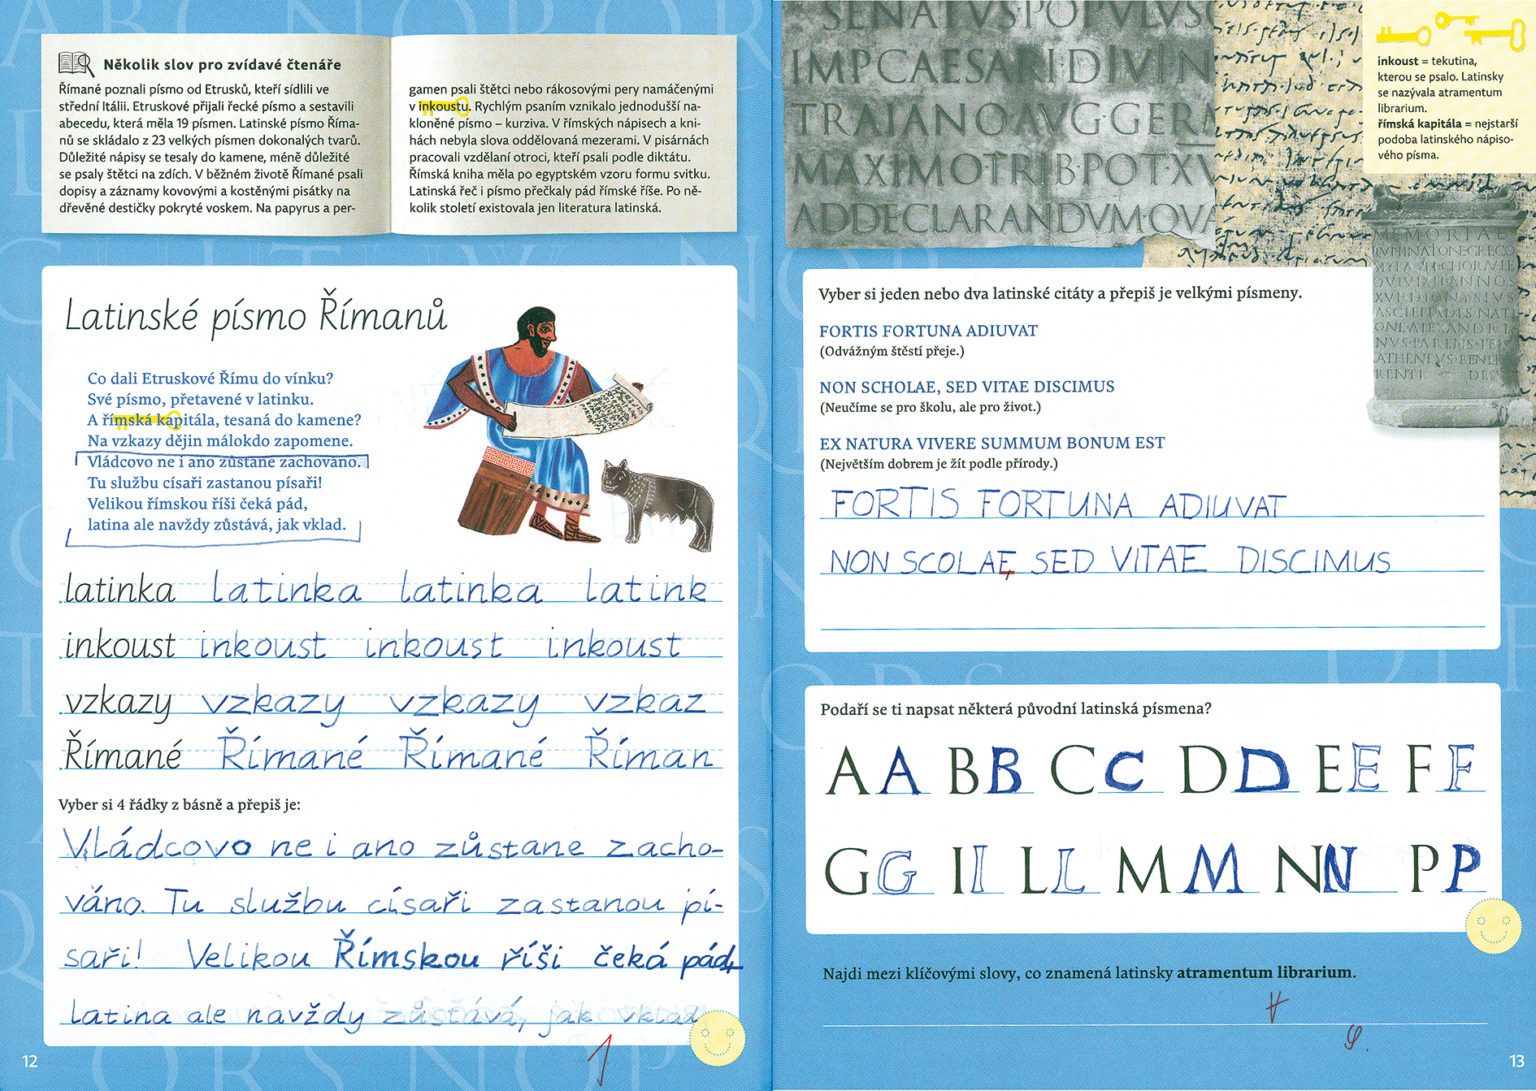 Několik slov pro zvídavé čtenáře
Římané poznali písmo od Etrusků, kteří sídlili ve
střední Itálii. Etruskové přijali řecké písmo a sestavili
abecedu, která měla 19 písmen. Latinské písmo Říma-
nů se skládalo z 23 velkých písmen dokonalých tvarů.
Důležité nápisy se tesaly do kamene, méně důležité
se psaly štětci na zdích. V běžném životě Římané psali
dopisy a záznamy kovovými a kostěnými pisátky na
dřevěné destičky pokryté voskem. Na papyrus a per-
gamen psali štětci nebo rákosovými pery namáčenými
v inkoustu. Rychlým psaním vznikalo jednodušší na-
kloněné písmo – kurziva. V římských nápisech a kni-
hách nebyla slova oddělovaná mezerami. V pisárnách
pracovali vzdělaní otroci, kteří psali podle diktátu.
Římská kniha měla po egyptském vzoru formu svitku.
Latinská řeč i písmo přečkaly pád římské říše. Po ně-
kolik století existovala jen literatura latinská.
Latinské písmo Římanů
Co dali Etruskové Římu do vínku?
Své písmo, přetavené v latinku.
A římská kapitála, tesaná do kamene?
Na vzkazy dějin málokdo zapomene.
Vládcovo ne i ano zůstane zachováno.
Tu službu císaři zastanou písaři!
Velikou římskou říši čeká pád,
latina ale navždy zůstává, jak vklad.
latinka latinka latinka latink
inkoust inkoust inkoust inkoust
vzkazy vzkazy vzkazy vzkaz
Římané Římané Římané Říman
Vyber si 4 řádky z básně a přepiš je:
Vládcovo ne i ano zůstane zacho-
váno. Tu službu císaři zastanou pí-
saři! Velikou Římskou říši čeká pád,
latina ale navždy zůstává, jak vklad
12
SENATVS·POPVLVSQ
IMP·CAESARI·DIVI·N
TRAIANO·AVG·GERM
MAXIMO·TRIB·POT·XV
AD·DECLARANDVM·QVA
inkoust = tekutina,
kterou se psalo. Latinsky
se nazývala atramentum
librarium.
římská kapitála = nejstarší
podoba latinského nápiso-
vého písma.
Vyber si jeden nebo dva latinské citáty a přepiš je velkými písmeny.
FORTIS FORTUNA ADIUVAT
(Odvážným štěstí přeje.)
NON SCHOLAE, SED VITAE DISCIMUS
(Neučíme se pro školu, ale pro život.)
EX NATURA VIVERE SUMMUM BONUM EST
(Největším dobrem je žít podle přírody.)
FORTIS FORTUNA ADIUVAT
NON SCOLAE, SED VITAE DISCIMUS
Podaří se ti napsat některá původní latinská písmena?
A A B B C C D D E E F F
G G I I L L M M N N P P
Najdi mezi klíčovými slovy, co znamená latinsky atramentum librarium.
13